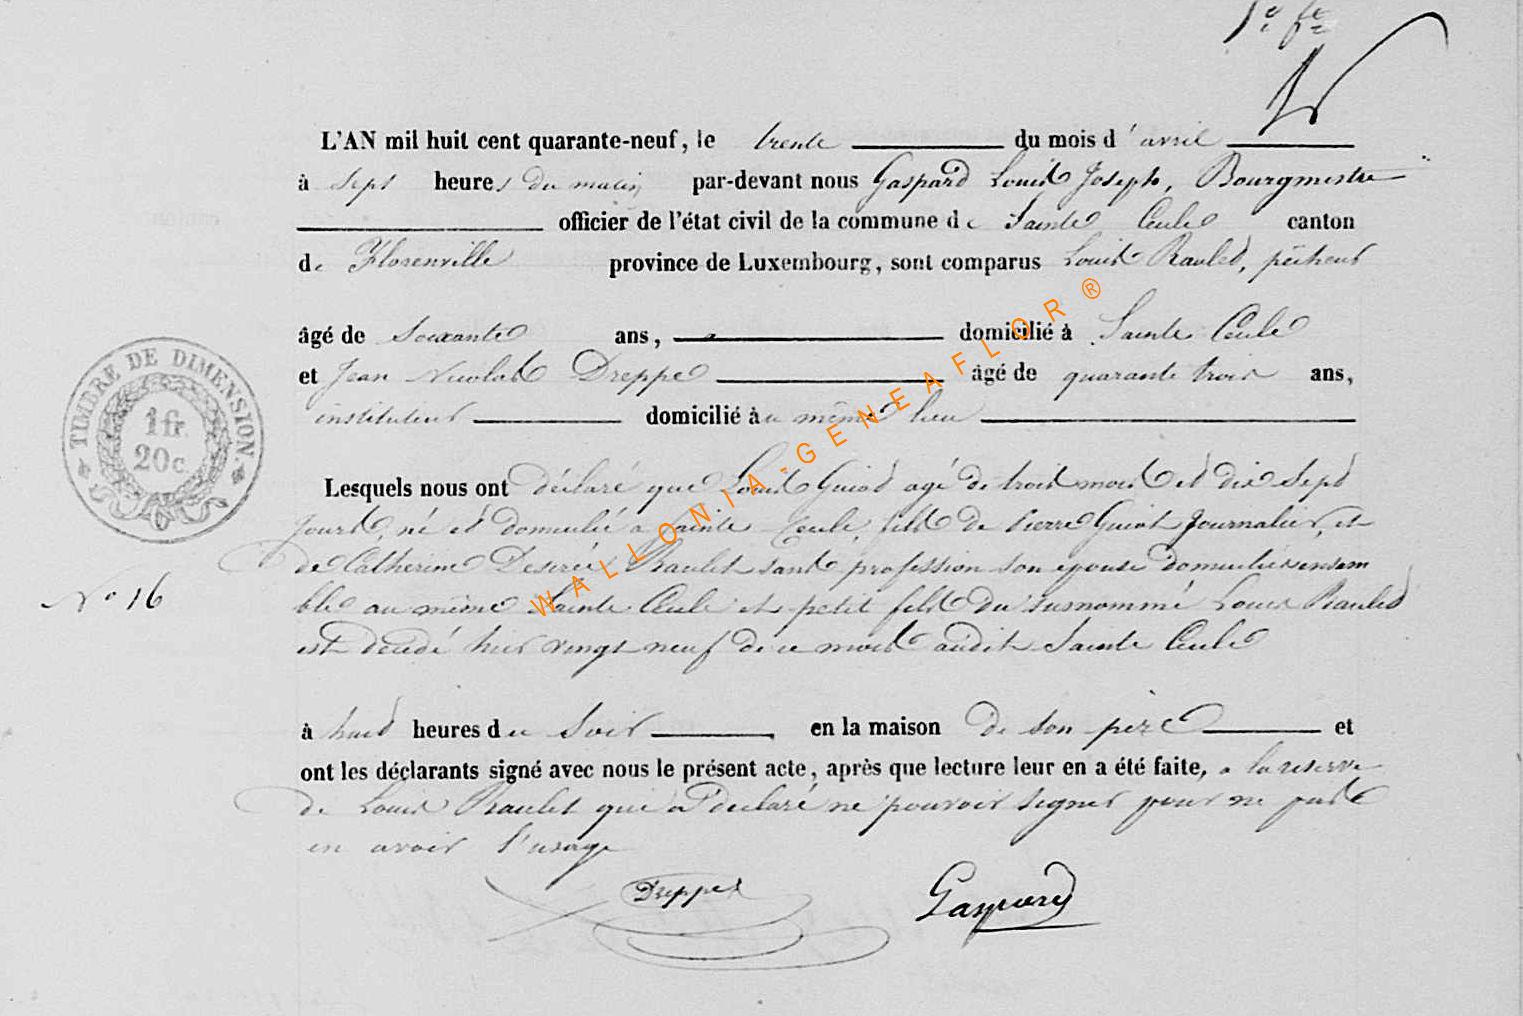 L'AN mil huit cent quarante-neuf, le trente du mois d'avril
à sept heures du matin par-devant nous Gaspard Louis Joseph, Bourgmestre
officier de l'état civil de la commune de Sainte Cecile canton
de Florenville province de Luxembourg, sont comparus Louis Raulet, pêcheur
âgé de Soixante ans, domicilié à Sainte Cecile
et Jean Nicolas Dreppe âgé de quarante trois ans,
instituteur domicilié au même lieu
Lesquels nous ont déclaré que Louis Guiot agé de trois mois et dix sept
jours, né et domicilié a Sainte Cecile, fils de Pierre Guiot Journalier, et
de Catherine Desirée Raulet sans profession son epouse domiciliés ensem
ble au même Sainte Cecile et petit fils du susnommé Louis Raulet
est decédé hier vingt neuf de ce mois audit Sainte Cecile
à huit heures du Soir en la maison de son père et
ont les déclarants signé avec nous le présent acte, après que lecture leur en a été faite, a la reserve
de Louis Raulet qui a declaré ne pouvoir signer pour ne pas
en avoir l'usage
Dreppe Gaspard
TIMBRE DE DIMENSION.
1 fr.
20 c.
No 16
WALLONIA-GENEAFLOR®